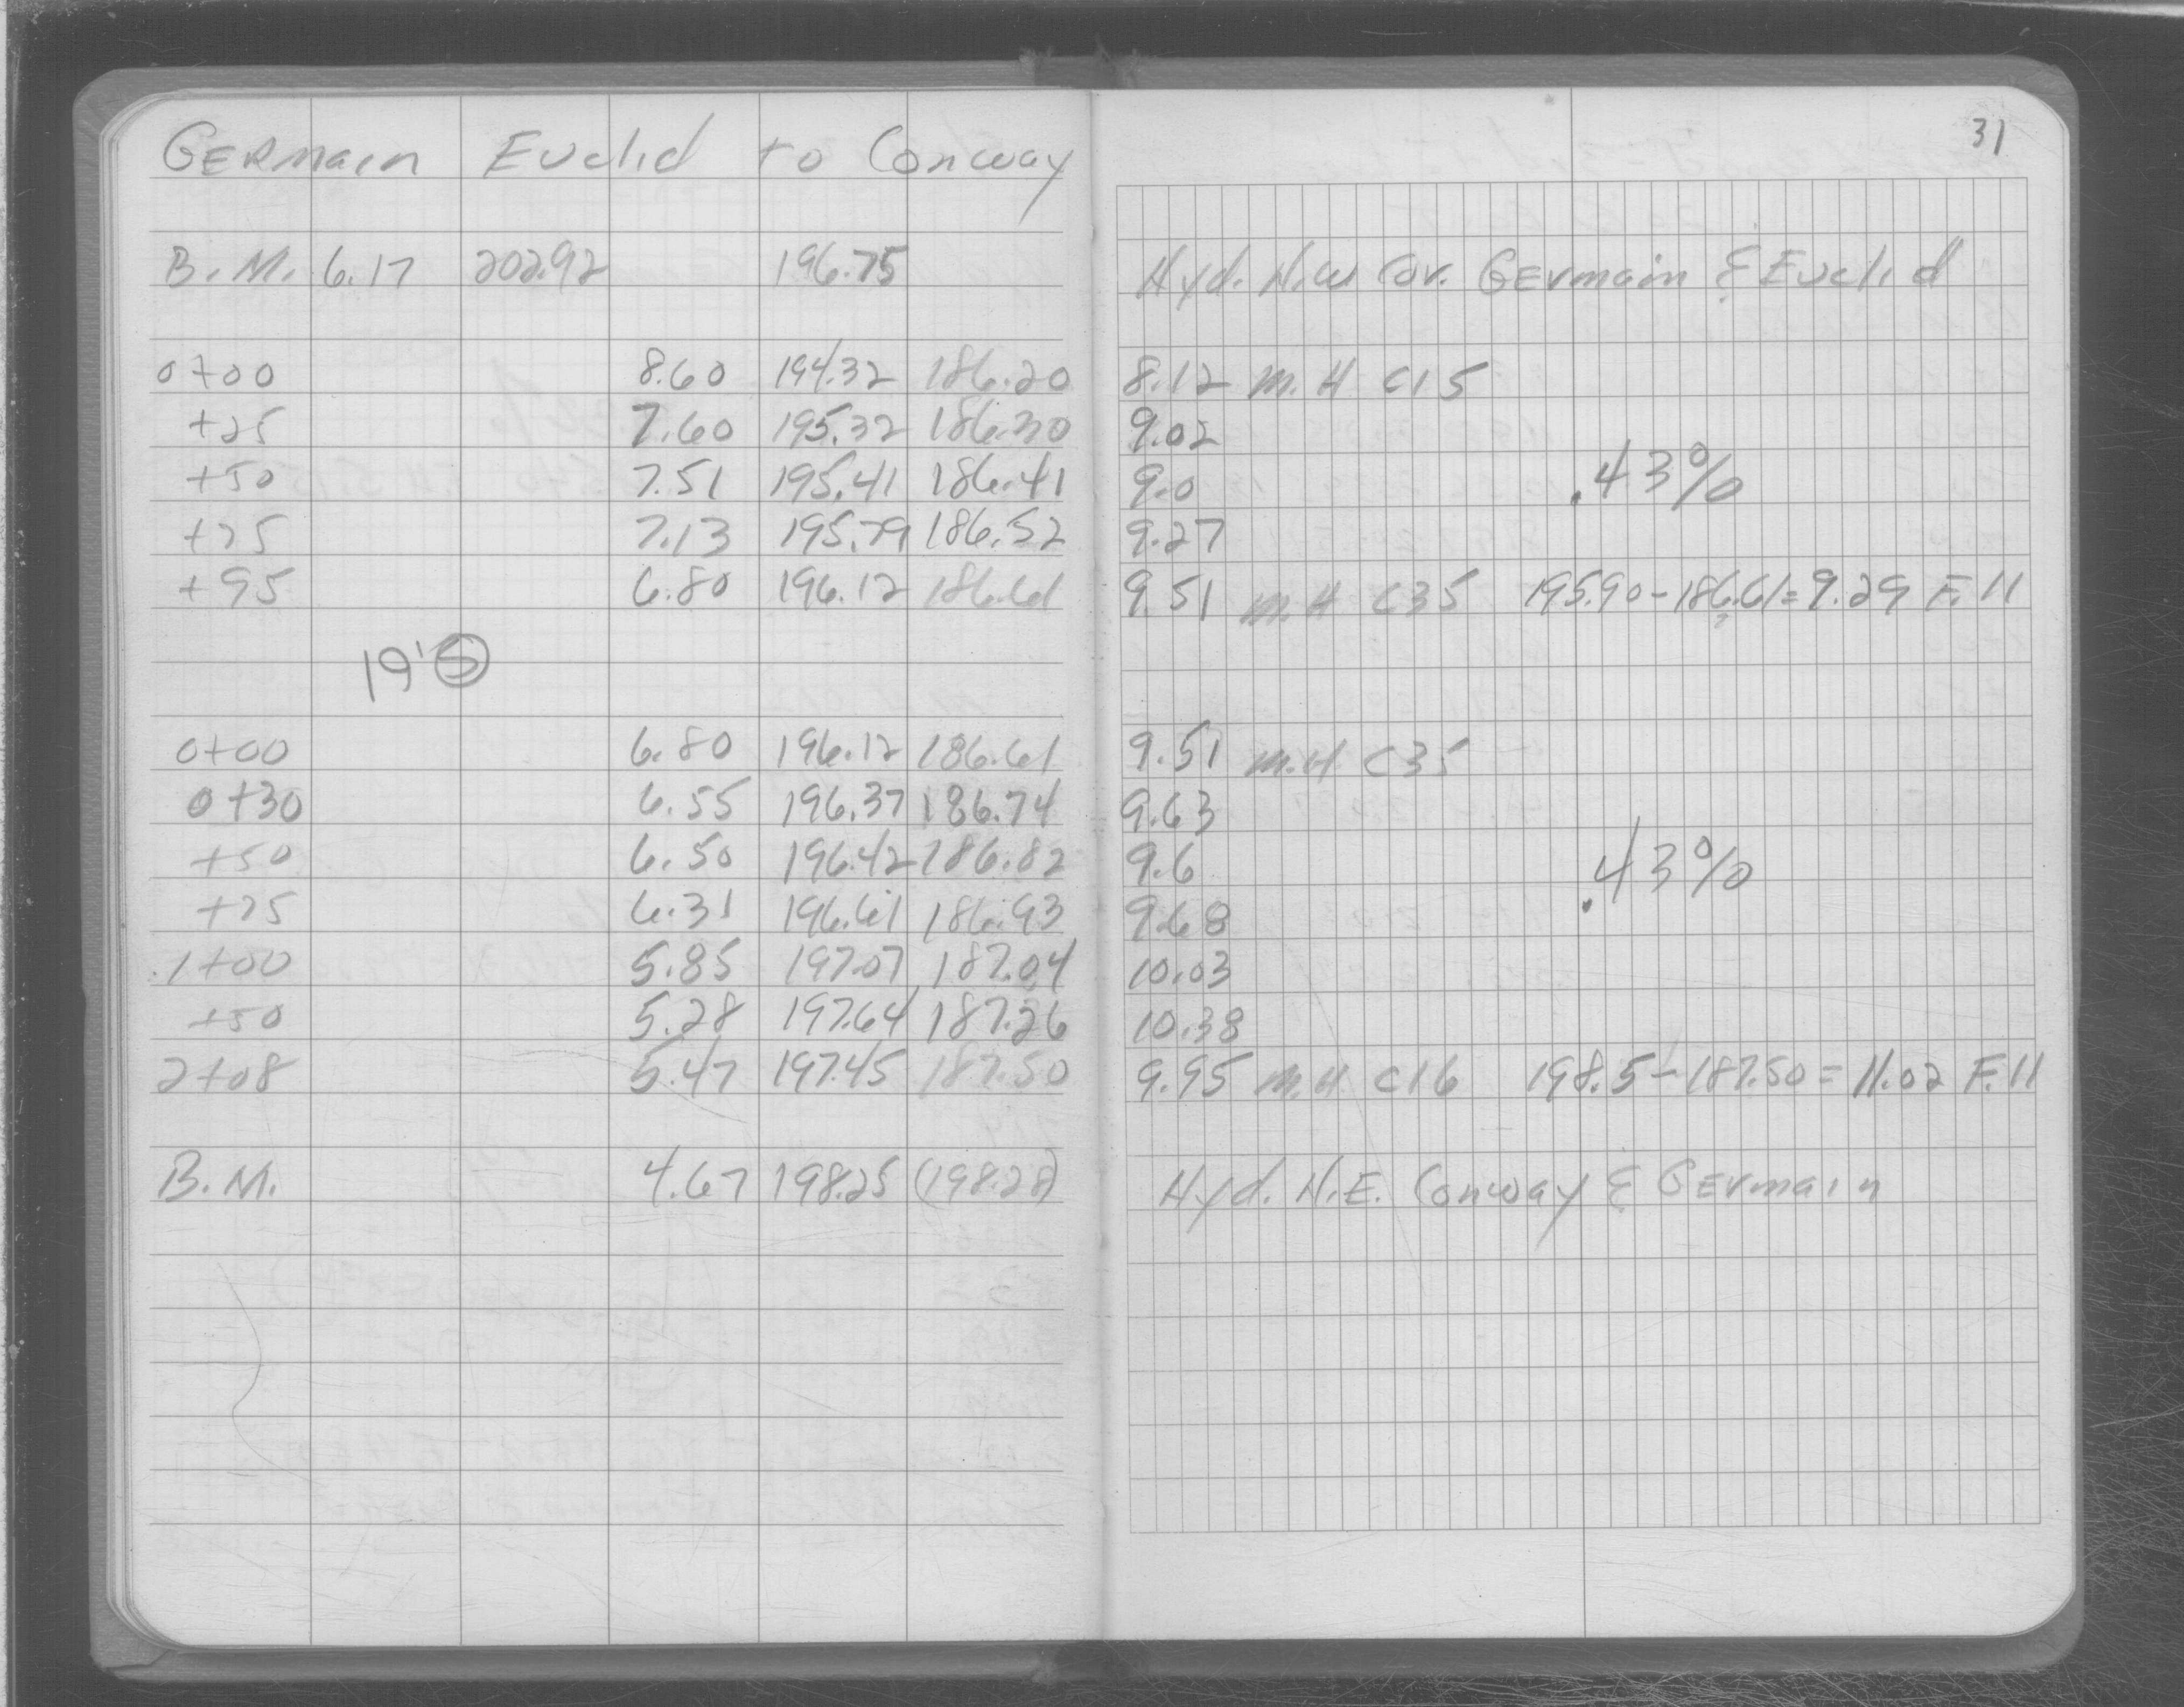 31
GERmain Euclid to Conway
B.M. 6.17 202.92 196.75 Hyd. N.W Cor. Germain & Euclid
0+00 8.60 194.32 186.20 8.12 M.H C15
+25 7.60 195.32 186.30 9.02
+50 7.51 195.41 186.41 9.0 .43%
+75 7.13 195.79 186.52 9.27
+95 6.80 196.12 186.61 9.51 M.H C35 195.90-186.61=9.29 F.11
19'S
0+00 6.80 196.12 186.61 9.51 M.H C35
0+30 6.55 196.37 186.74 9.63
+50 6.50 196.42 186.82 9.6 .43%
+75 6.31 196.61 186.93 9.68
1+00 5.85 197.07 187.04 10.03
+50 5.28 197.64 187.26 10.38
2+08 5.47 197.45 187.50 9.95 M.H C16 198.5-187.50=11.02 F.11
B.M. 4.67 198.25 (198.28) Hyd. N.E. Conway & Germain